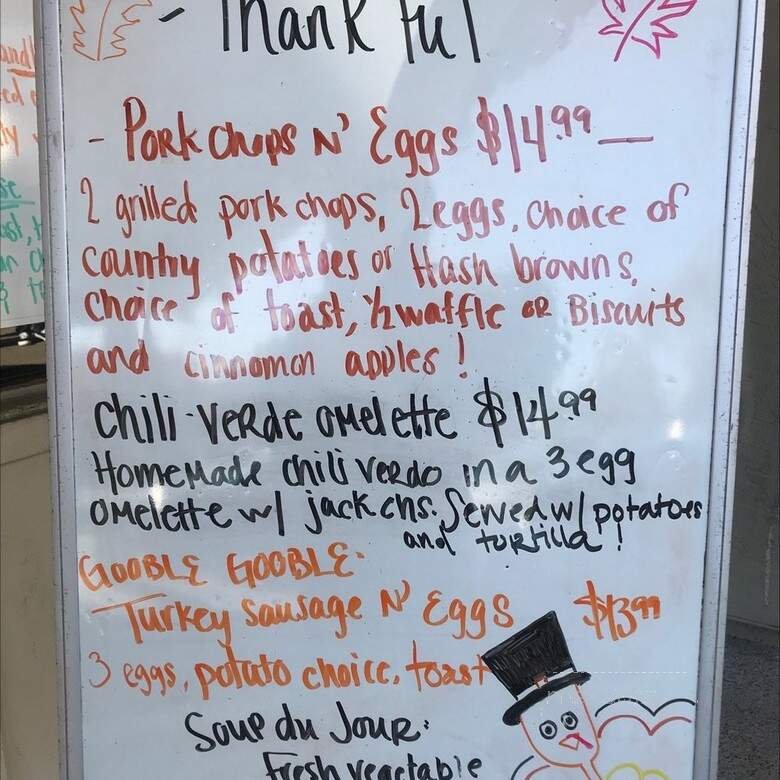 - Thankful
- Pork chops N' Eggs $14.99 —
2 grilled pork chops, 2 eggs, choice of
country potatoes or Hash browns,
choice of toast, 1/2 waffle or Biscuits
and cinnomon apples!
Chili-verde omelette $14.99
Homemade chili verdo in a 3 egg
omelette w/ jack chs. Served w/ potatoes
and tortilla!
GOOBLE GOOBLE-
Turkey sausage N' Eggs $13.99
3 eggs, potato choice, toast
Soup du Jour:
Fresh vegetable